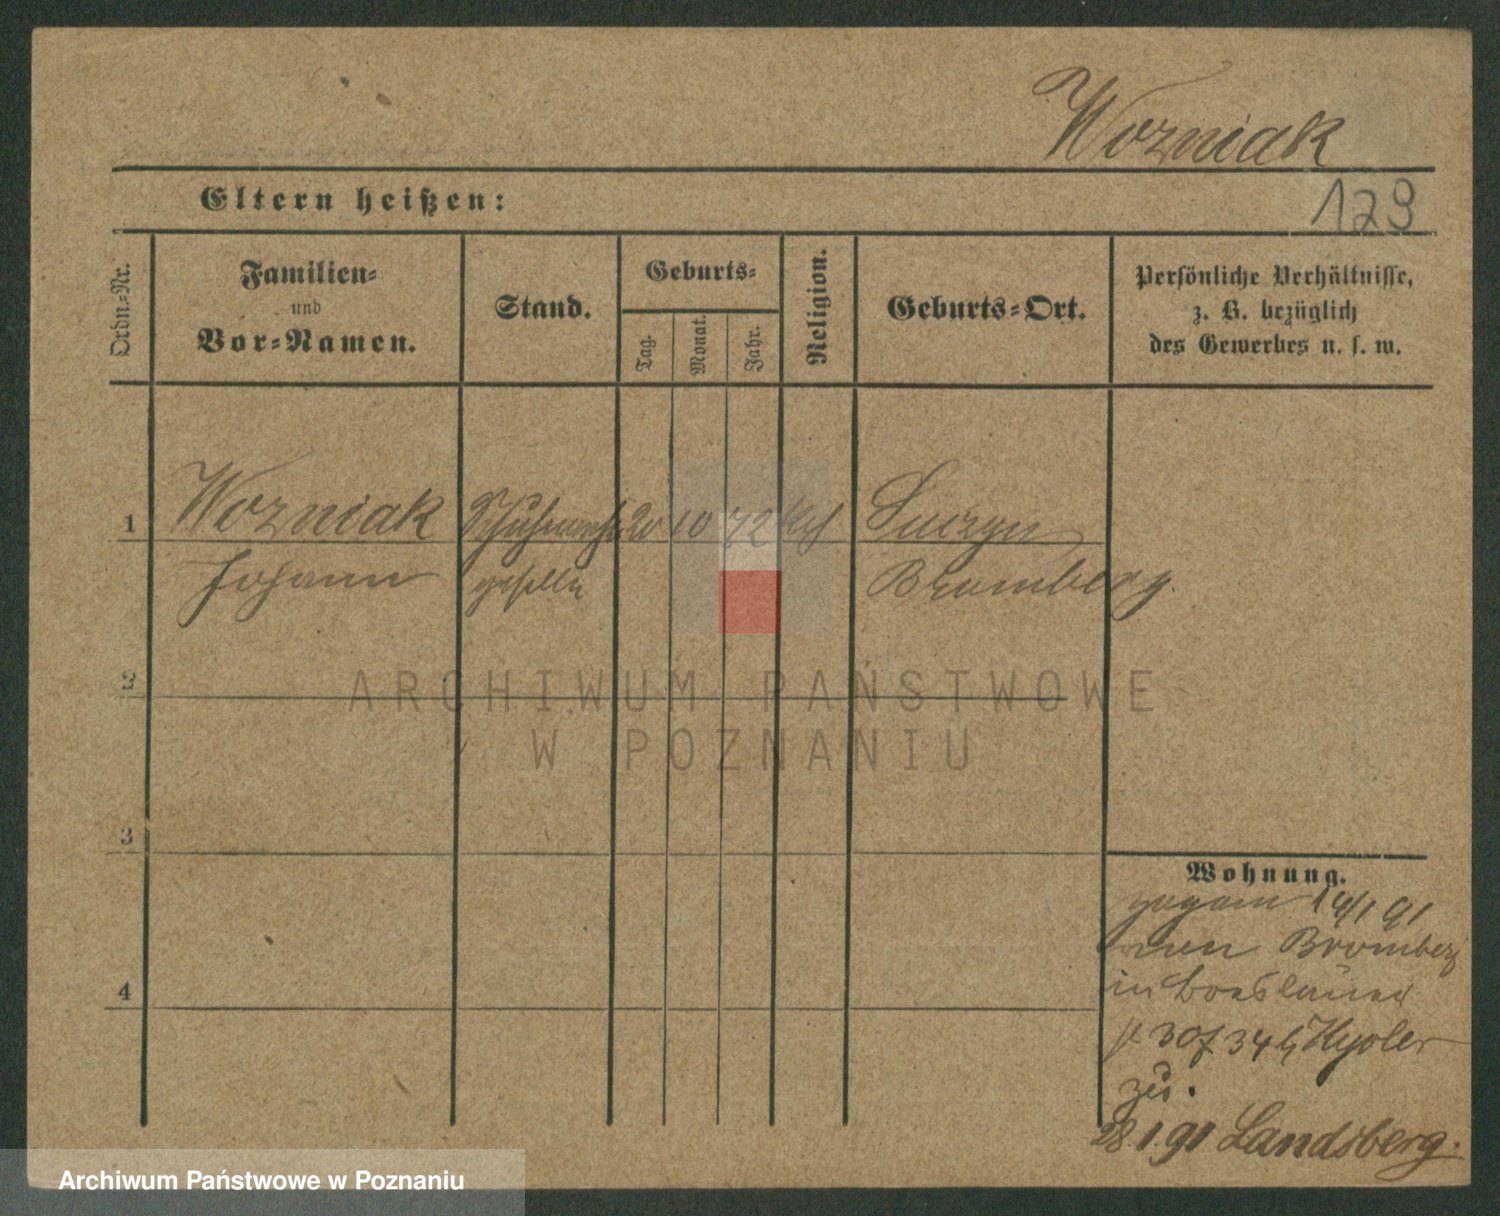 Wozniak
Eltern heißen:
129
Ordn.-Nr.
Familien-
und
Vor-Namen.
Stand.
Geburts-
Tag.
Monat.
Jahr.
Religion.
Geburts-Ort.
Persönliche Verhältnisse,
z. B. bezüglich
des Gewerbes u. s. w.
1
Wozniak
20 10 72
Johann
geselle
Bromberg.
2
ARCHIWUM PAŃSTWOWE
W POZNANIU
3
Wohnung.
14/1 91
von Bromberg
in Breslauer
30 34
zu.
28 1.91 Landsberg.
4
Archiwum Państwowe w Poznaniu